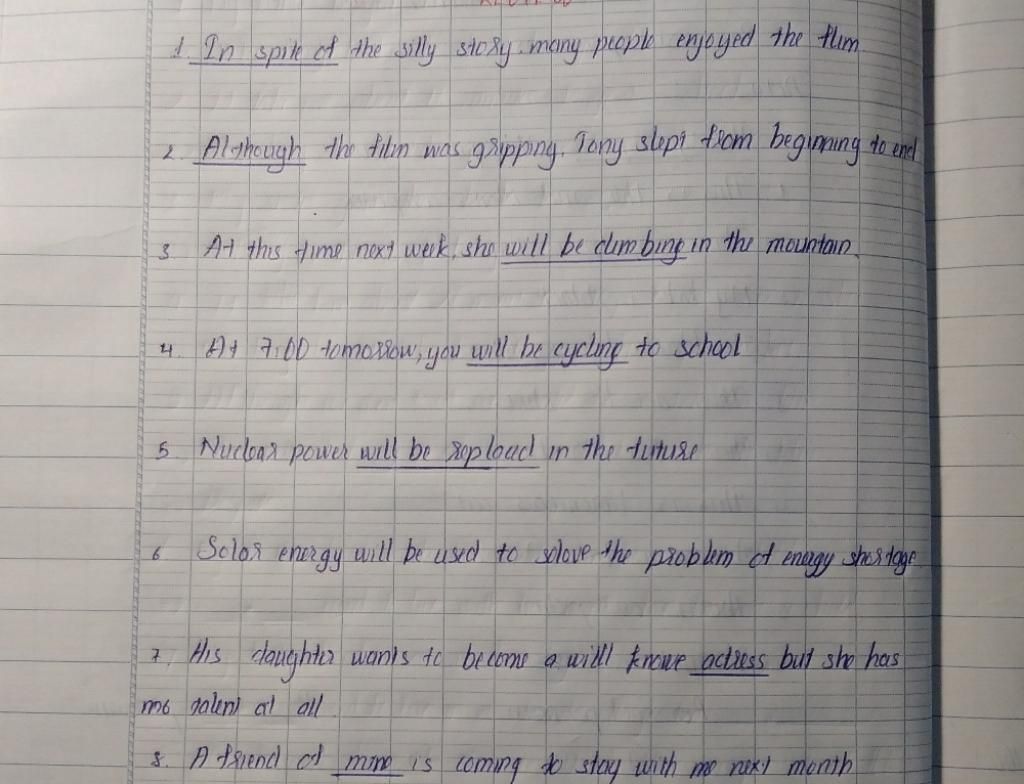 1. In spite of the silly story. many people enjoyed the film
2. Although the film was gripping. Tony slept from beginning to end
3 At this time next week, she will be climbing in the mountain.
4. At 7:00 tomorrow, you will be cycling to school
5 Nuclear power will be in the future
6 Solar energy will be used to solove the problem of energy shortage
7, His daughter wants to become a willl knowe actress but she has
no talent at all
8. A friend of mine is coming to stay with me next month